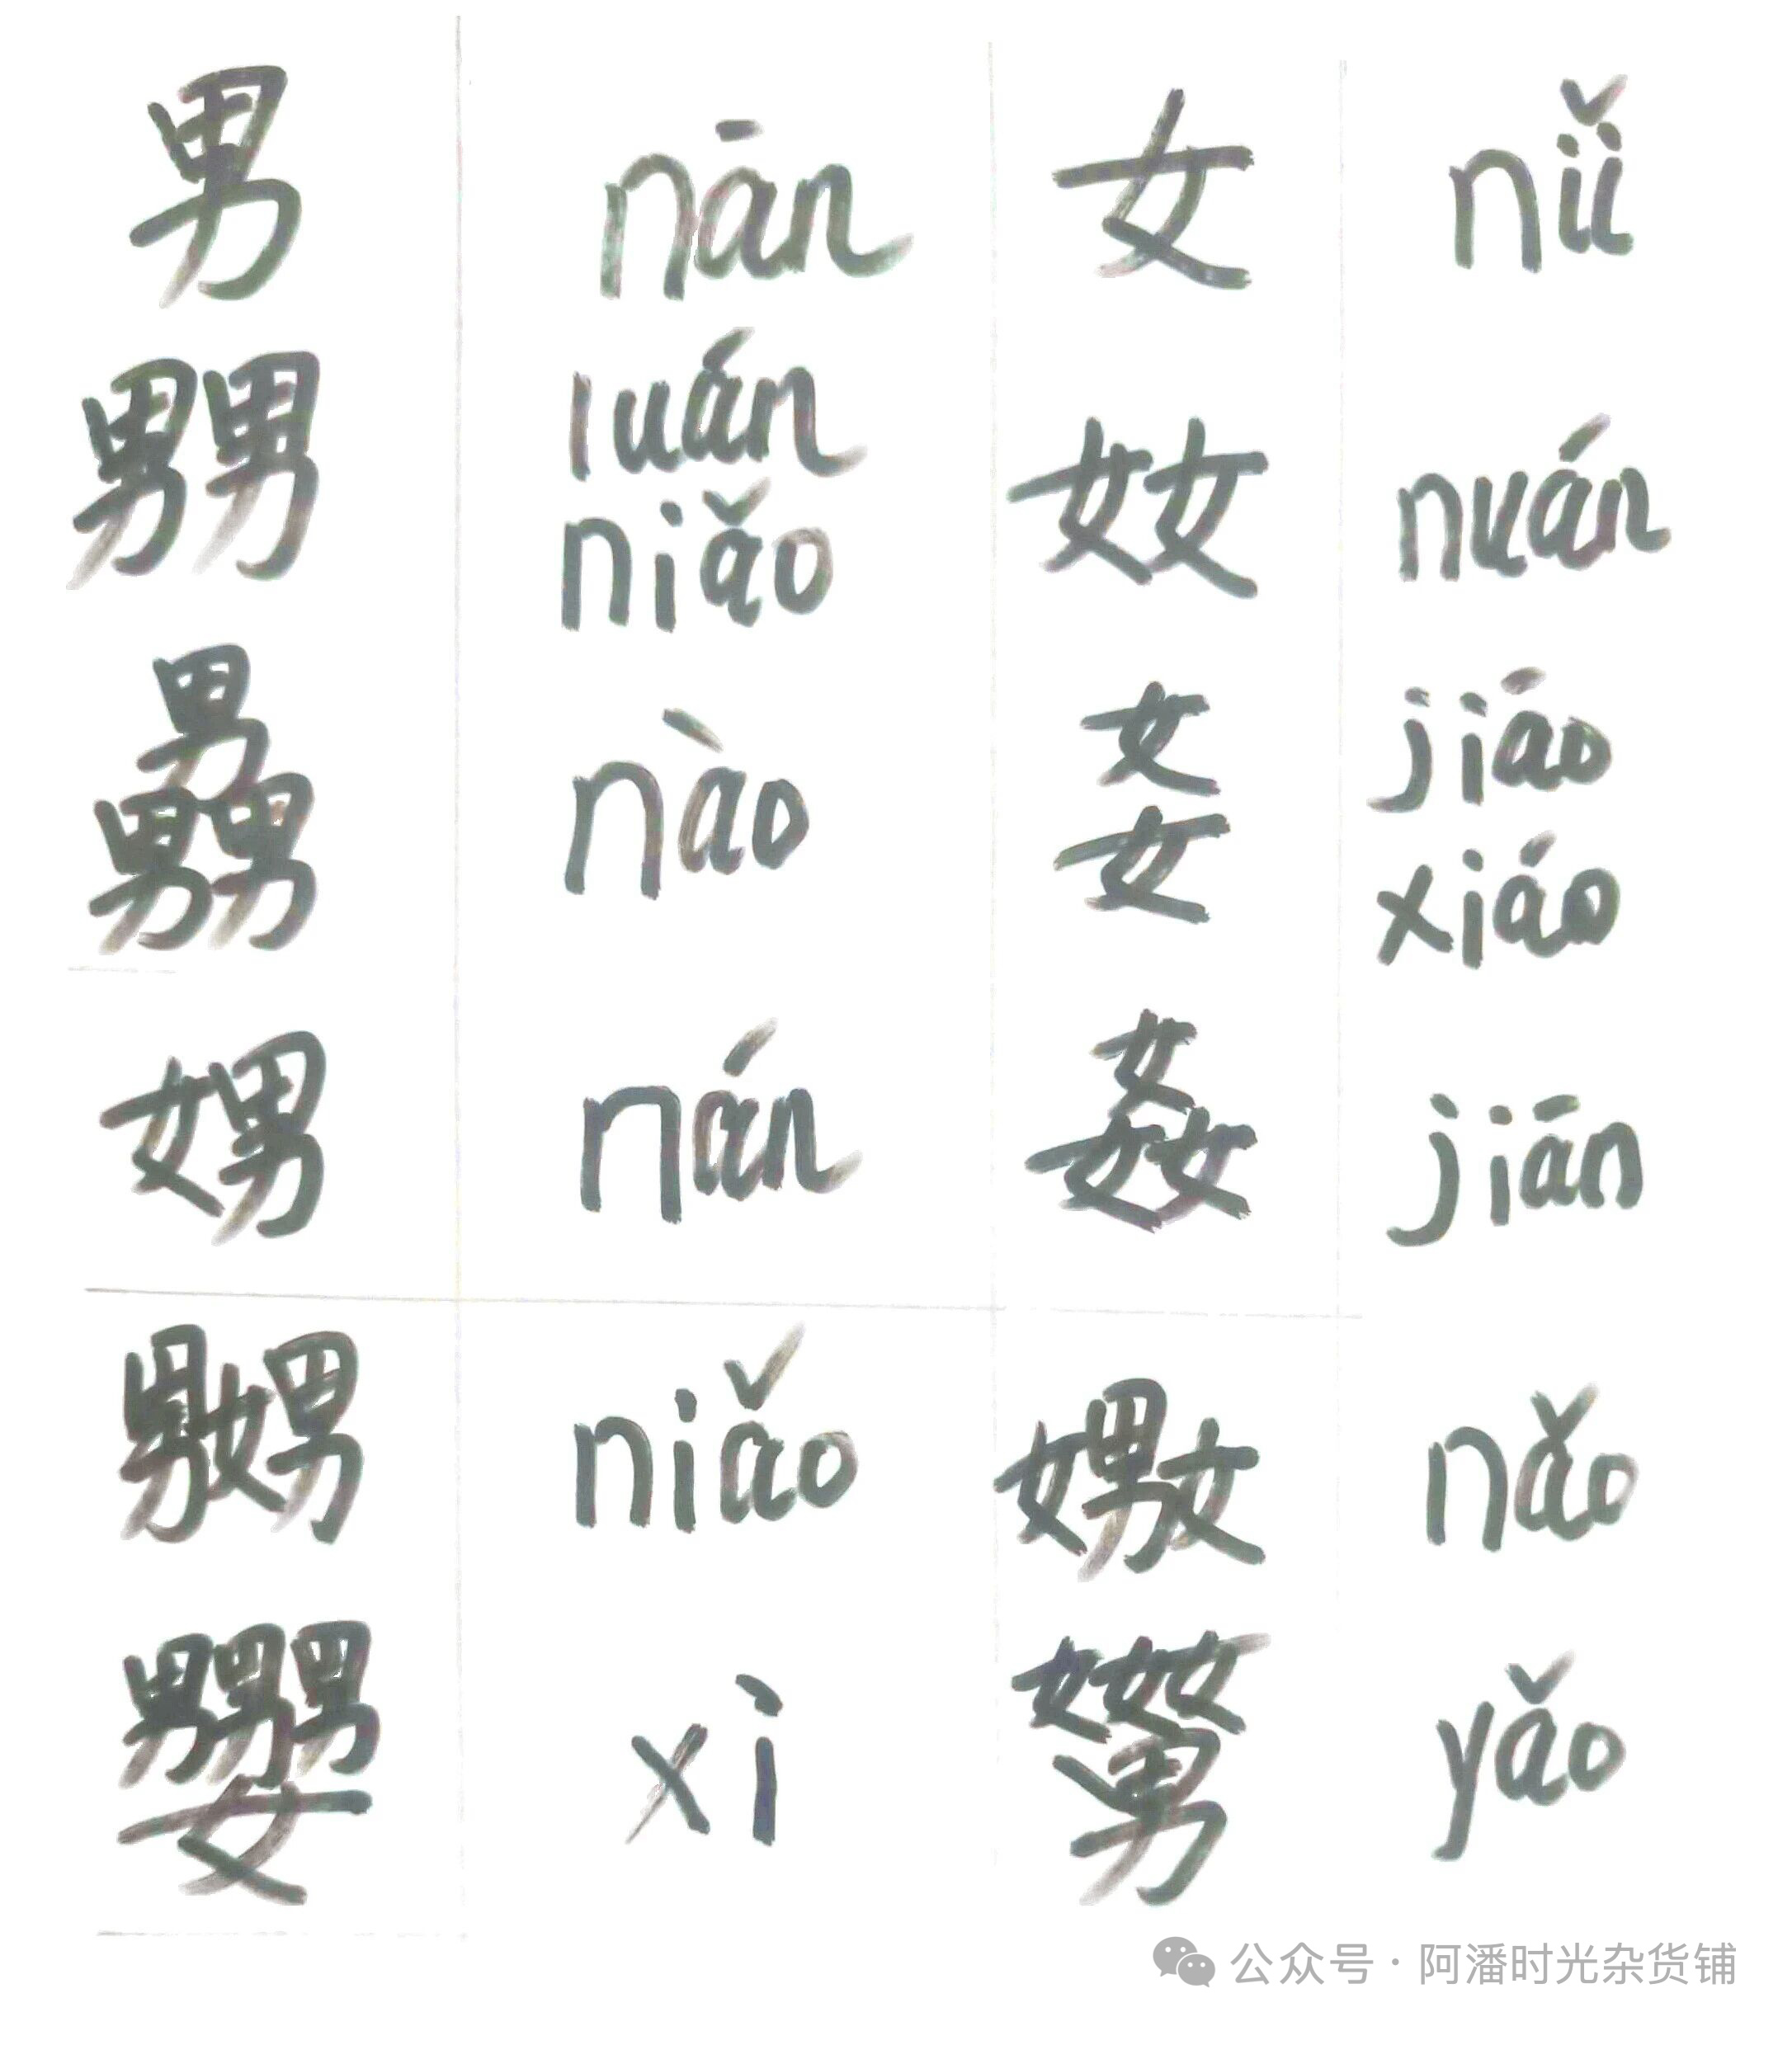 男 nān 女 nǚ
luán 奻 nuán
niǎo
nào 㚣 jiáo
xiáo
娚 nán 姦 jiān
嬲 niǎo 嫐 nǎo
xì yǎo
公众号·阿潘时光杂货铺